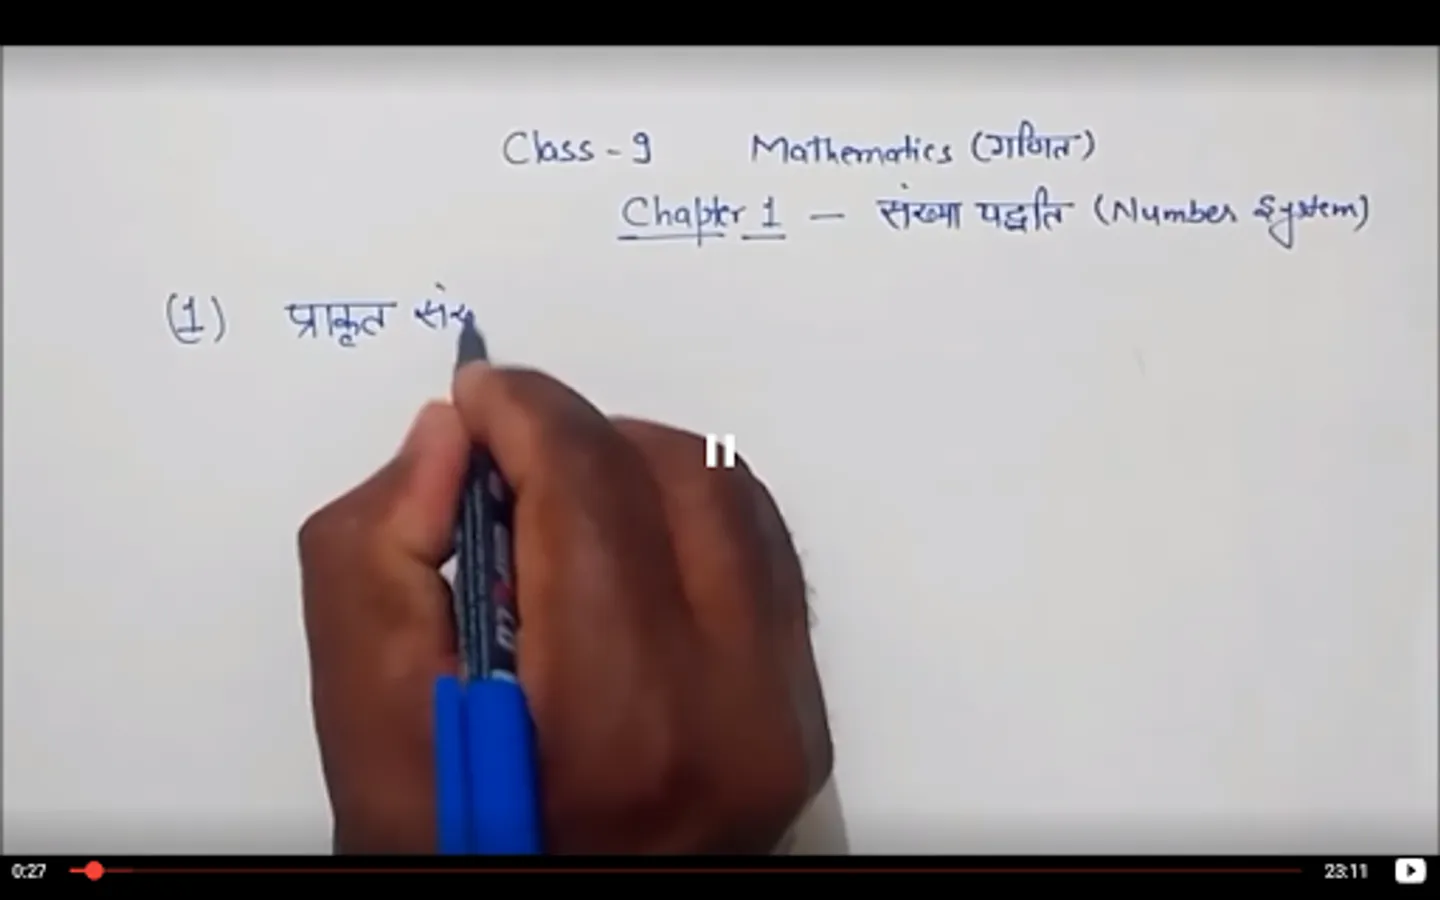 Class - 9 Mathematics (गणित)
Chapter 1 — संख्या पद्धति (Number System)
(1) प्राकृत
0:27 23:11